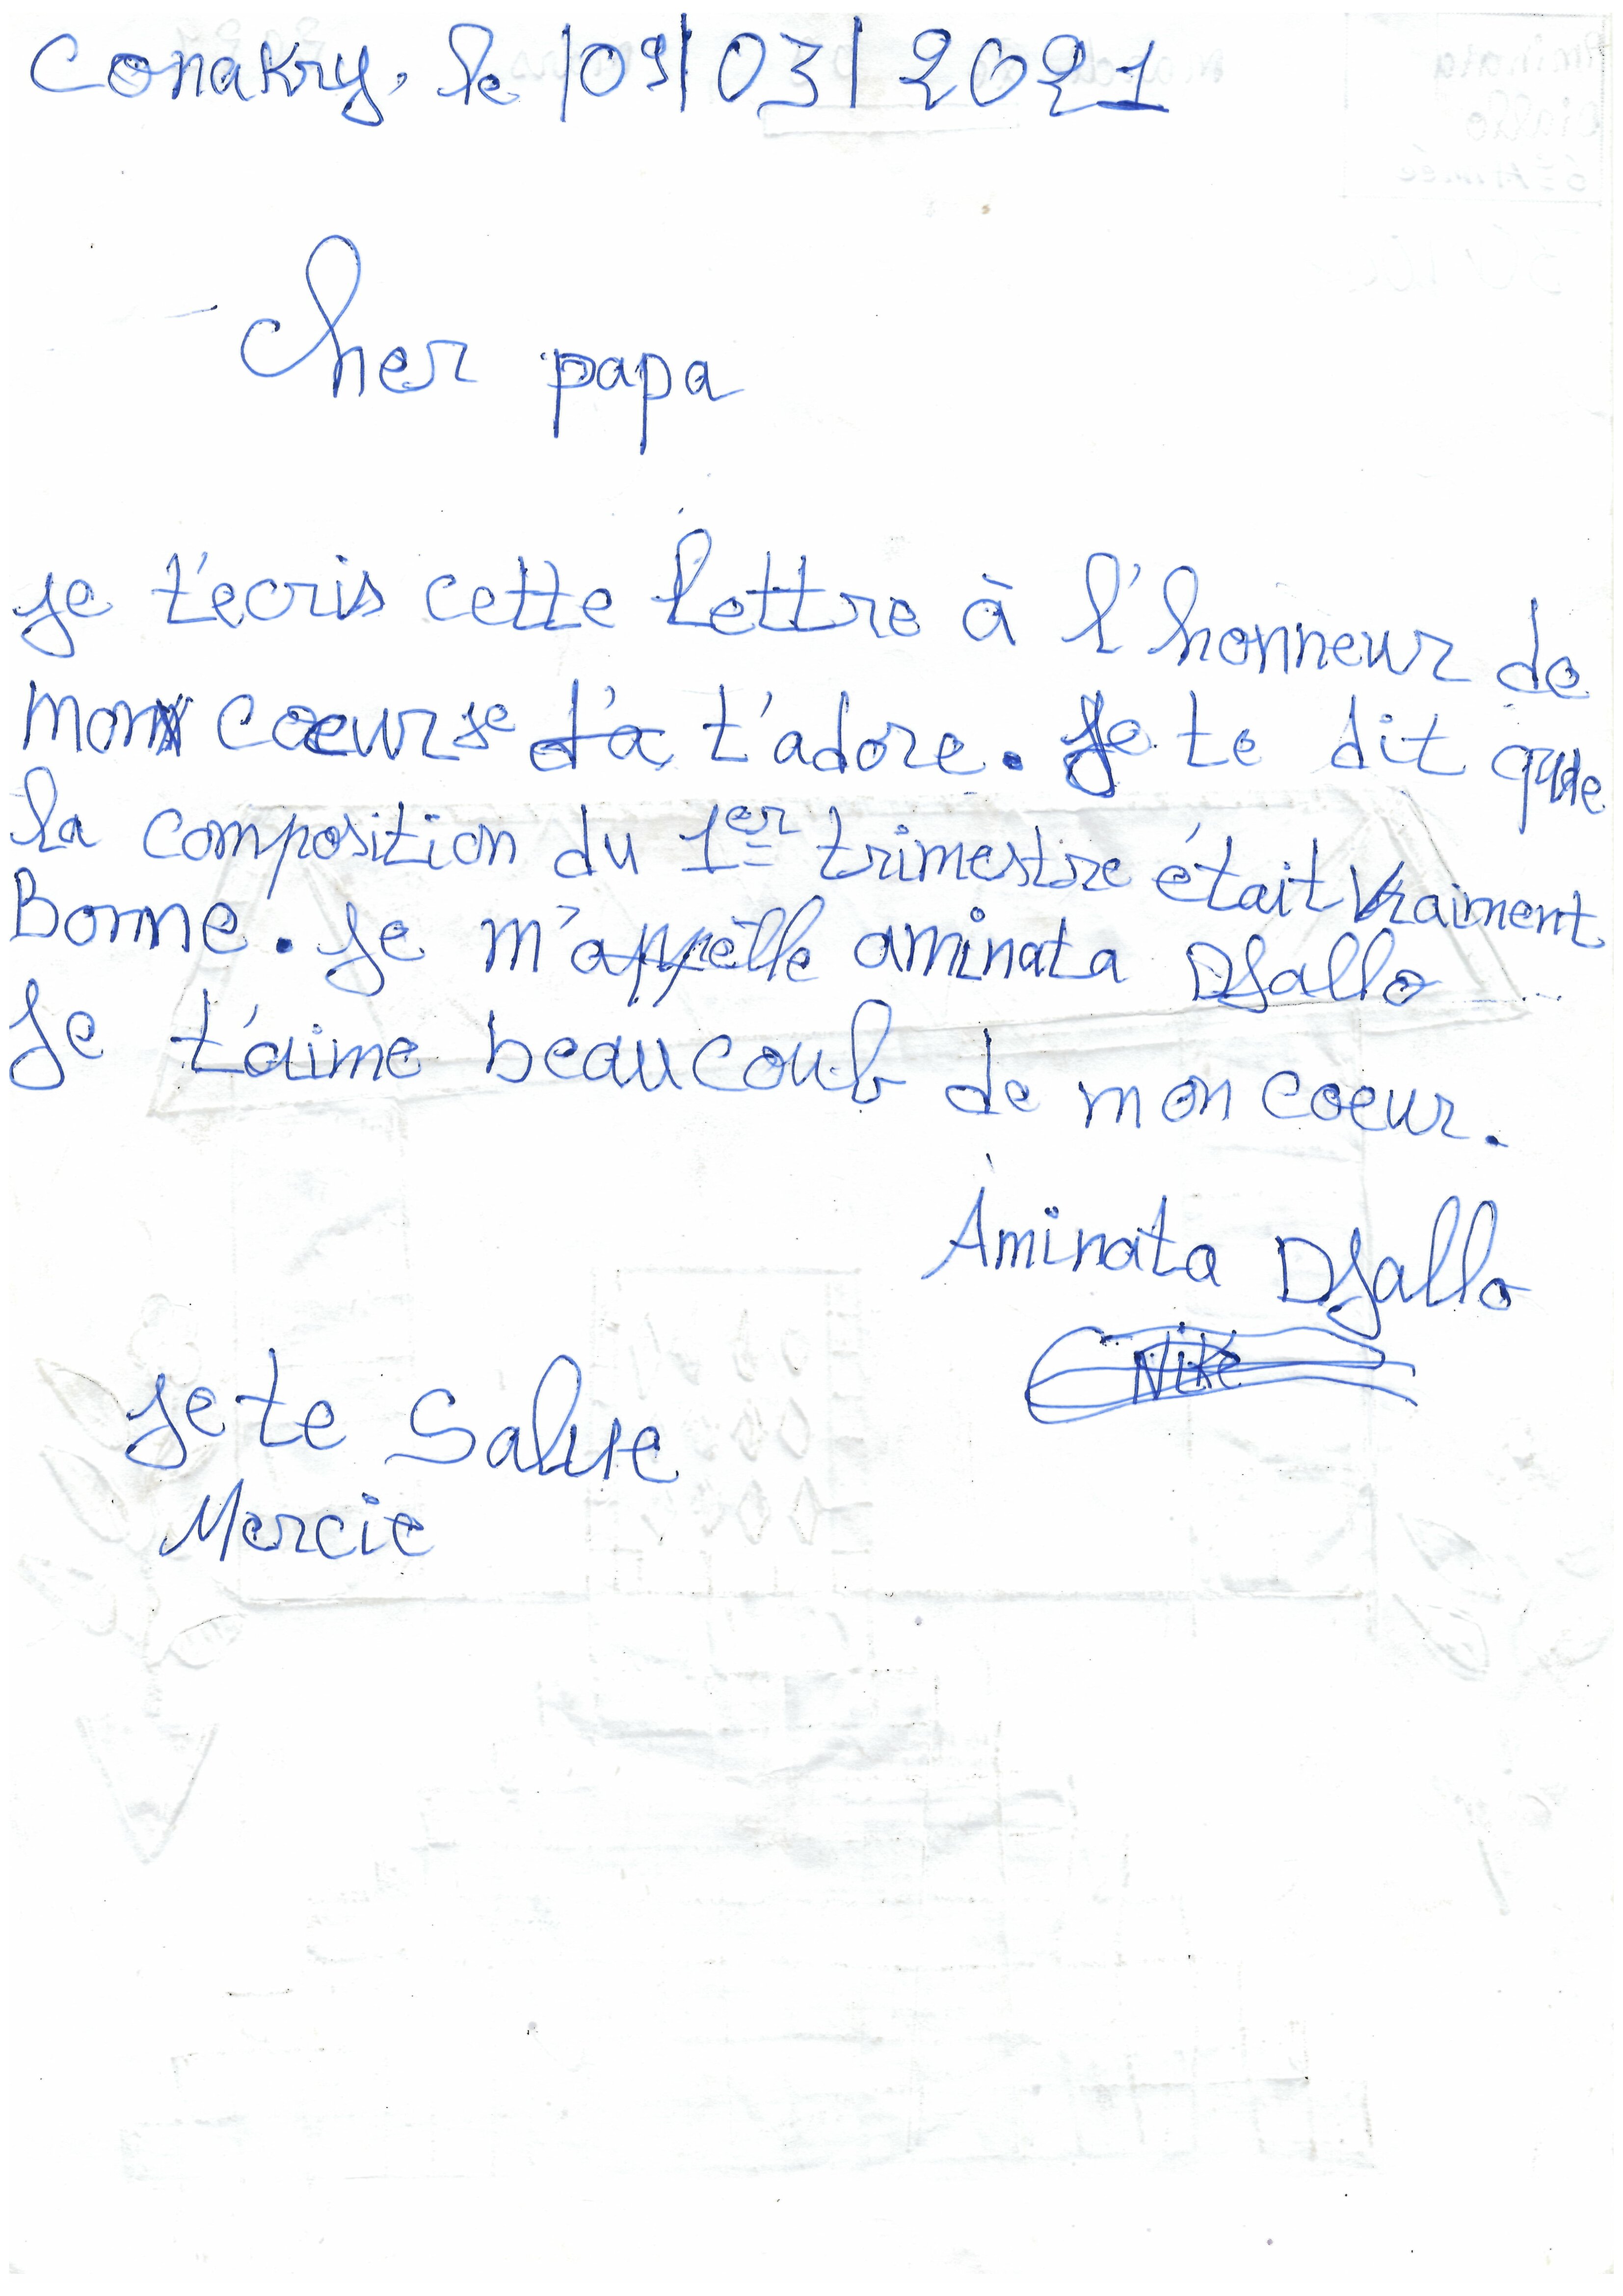 Conakry, le |09|03|2021
Cher papa
Je t'ecris cette lettre à l'honneur de
mon coeur je t'adore. Je te dit que
la composition du 1er trimestre était vraiment
Bonne. Je m'appèlle aminata Djallo
Je t'aime beaucoub de mon coeur.
Aminata Djallo
Nike
Je te Salue
Mercie